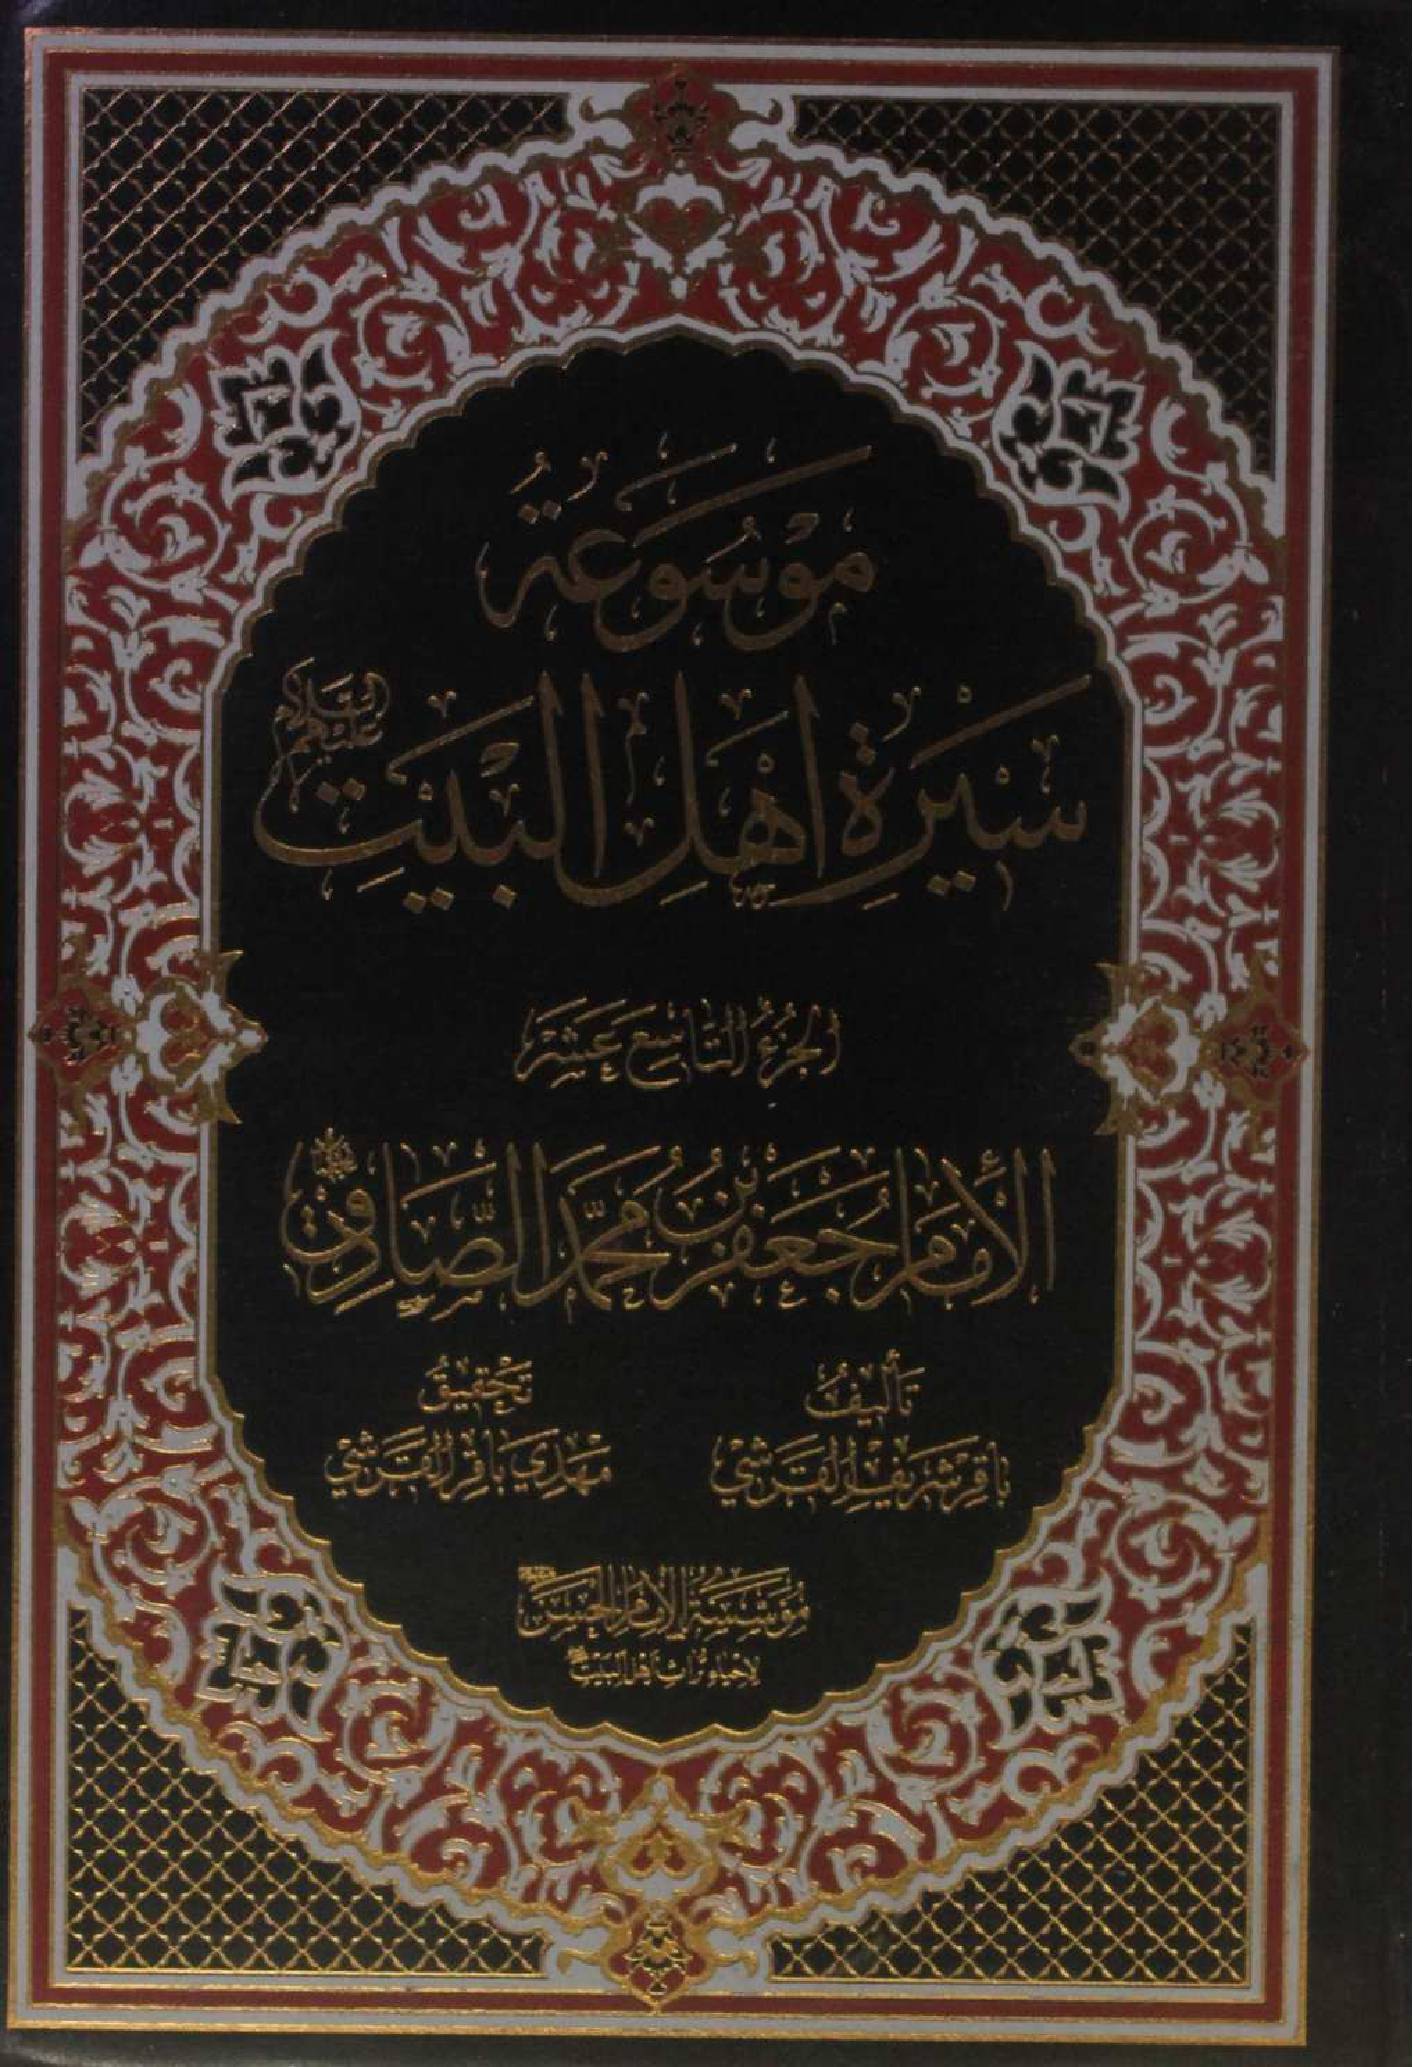 مَوْسُوعَةُ
سِيْرَةِ اَهْلِ الْبَيْتِ عليهم السلام
الجُزْءُ التَّاسِع عَشَر
الإِمَام جَعْفَر بْنُ مُحَمَّد الصَّادِق
تَأليفُ
بَاقِر شَرِيف الْقَرَشِي
تَحْقِيقُ
مَهْدِي بَاقِر الْقَرَشِي
مُؤَسَّسَةُ الإمَامِ الْحَسَن
لإِحْيَاءِ تُرَاثِ أَهْلِ الْبَيْت